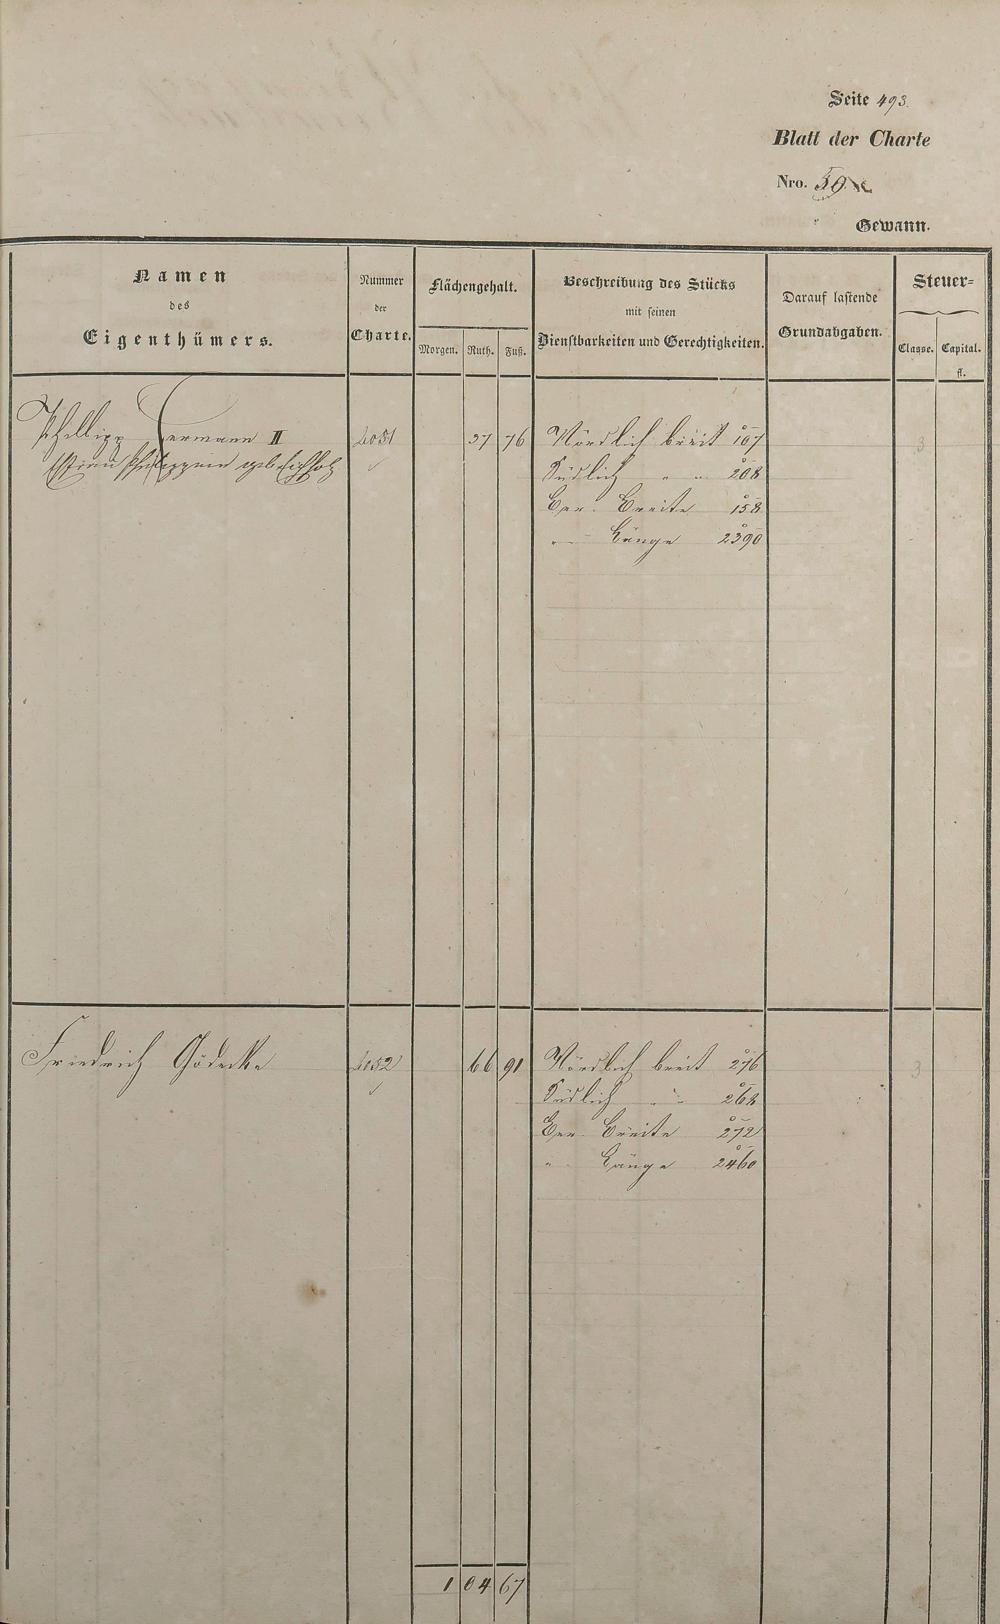 Seite 493.
Blatt der Charte
Nro. 50
Gewann.
Namen
des
Eigenthümers.
Nummer
der
Charte.
Flächengehalt.
Morgen. Ruth. Fuß.
Beschreibung des Stücks
mit seinen
Dienstbarkeiten und Gerechtigkeiten.
Darauf lastende
Grundabgaben.
Steuer=
Classe. Capital.
fl.
Philipp Hermann II 4051 37 76 Nördlich breit 107 3
geb. Südlich " " 208
Ber. Breite 158
" Länge 2390
Friedrich Gödecke 4052 66 91 Nördlich breit 276 3
Südlich " " 268
Ber. Breite 272
" Länge 2460
1 04 67